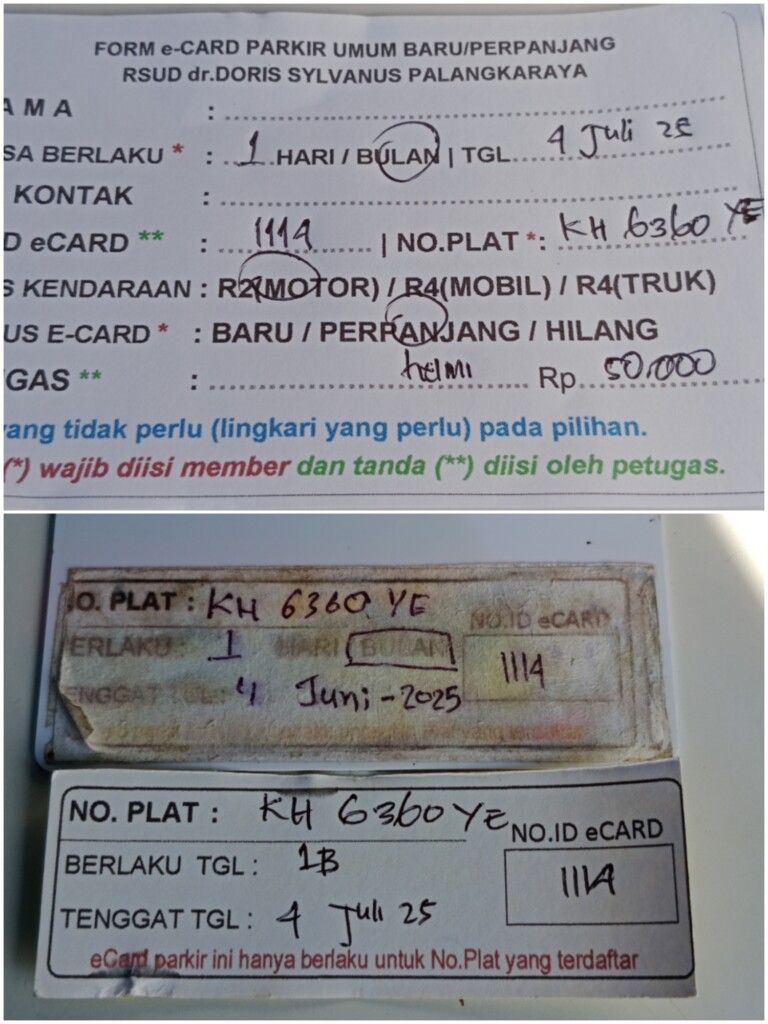 FORM e-CARD PARKIR UMUM BARU/PERPANJANG
RSUD dr.DORIS SYLVANUS PALANGKARAYA
AMA :
SA BERLAKU * : 1 HARI / BULAN | TGL 4 Juli 25
KONTAK :
D eCARD ** : 1114 | NO.PLAT *: KH 6360 YE
S KENDARAAN : R2(MOTOR) / R4(MOBIL) / R4(TRUK)
US E-CARD * : BARU / PERPANJANG / HILANG
GAS ** : helmi Rp 50.000
yang tidak perlu (lingkari yang perlu) pada pilihan.
(*) wajib diisi member dan tanda (**) diisi oleh petugas.
O. PLAT : KH 6360 YE
NO.ID eCARD
ERLAKU : 1 HARI BULAN
1114
ENGGAT TGL: 4 Juni - 2025
NO. PLAT : KH 6360 YE
NO.ID eCARD
BERLAKU TGL : 1B
1114
TENGGAT TGL : 4 Juli 25
eCard parkir ini hanya berlaku untuk No.Plat yang terdaftar